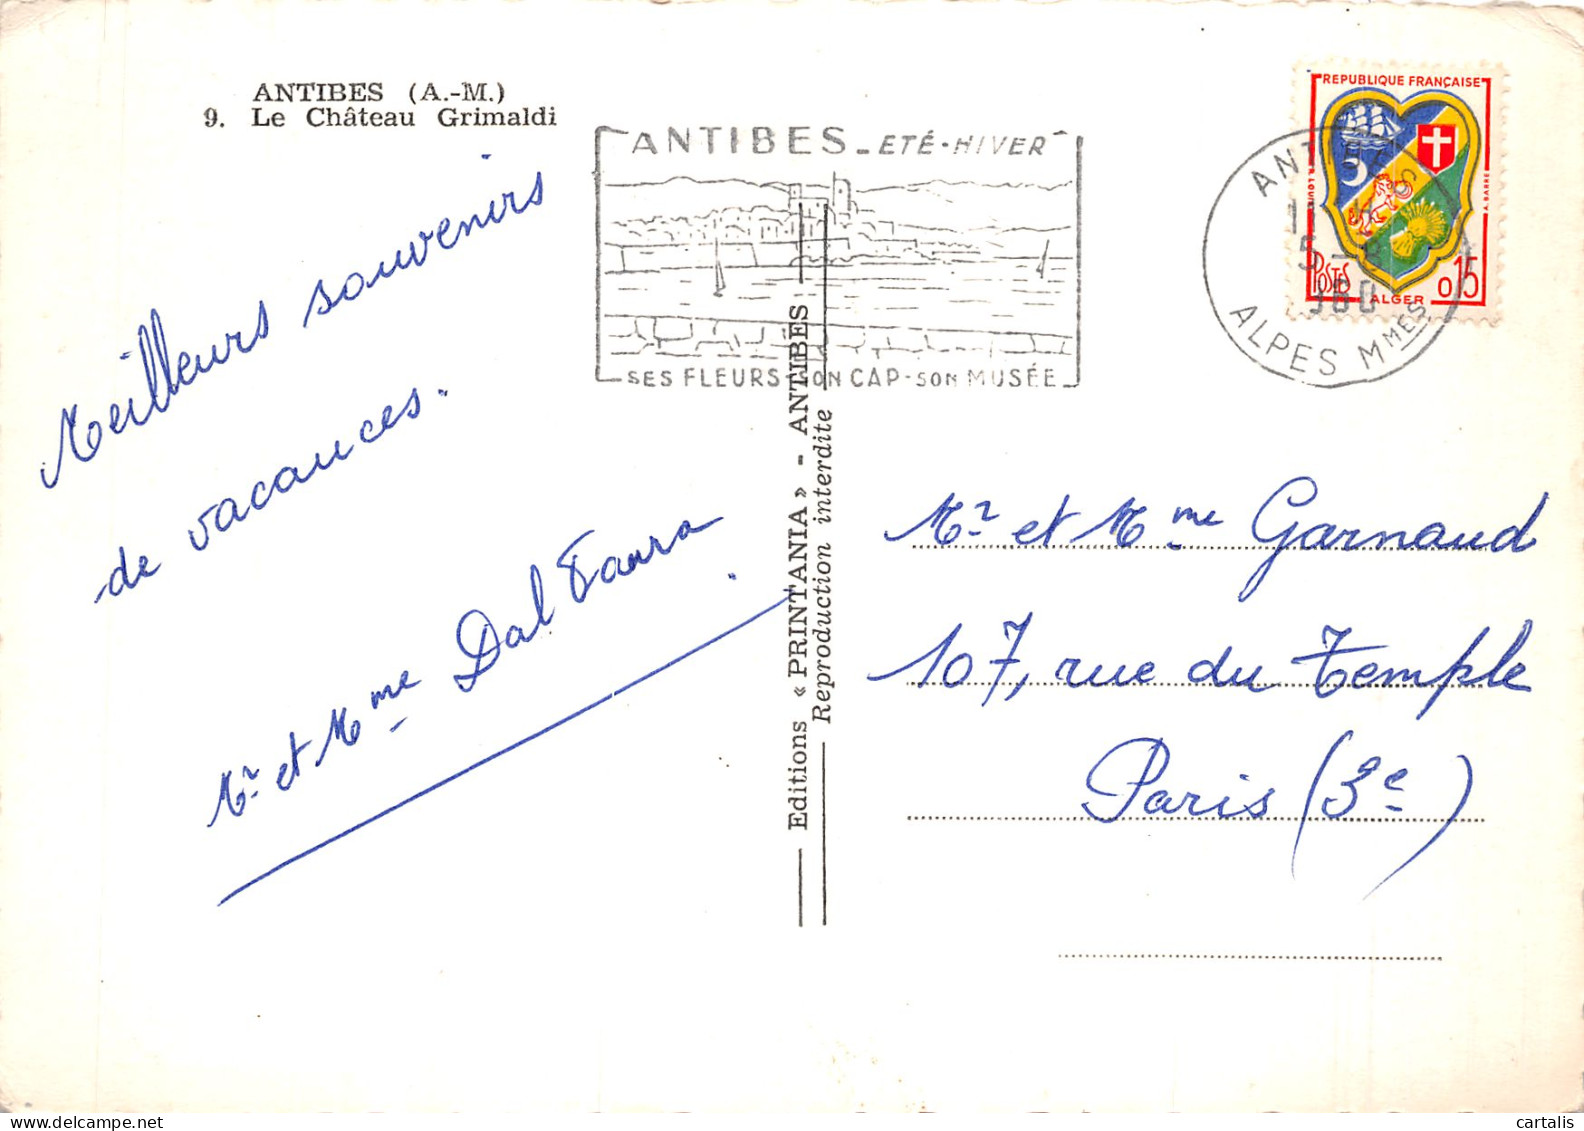 ANTIBES (A.-M.)
9. Le Château Grimaldi
Meilleurs souvenirs
de vacances.
Mr et Mme Dal Favra
ANTIBES - ETÉ - HIVER
SES FLEURS - SON CAP - SON MUSÉE
Editions « PRINTANIA » - ANTIBES
Reproduction interdite
REPUBLIQUE FRANÇAISE
POSTES
ALGER
0,15
ANTIBES
ALPES Mmes
Mr et Mme Garnaud
107, rue du Temple
Paris (3e)
cartalis